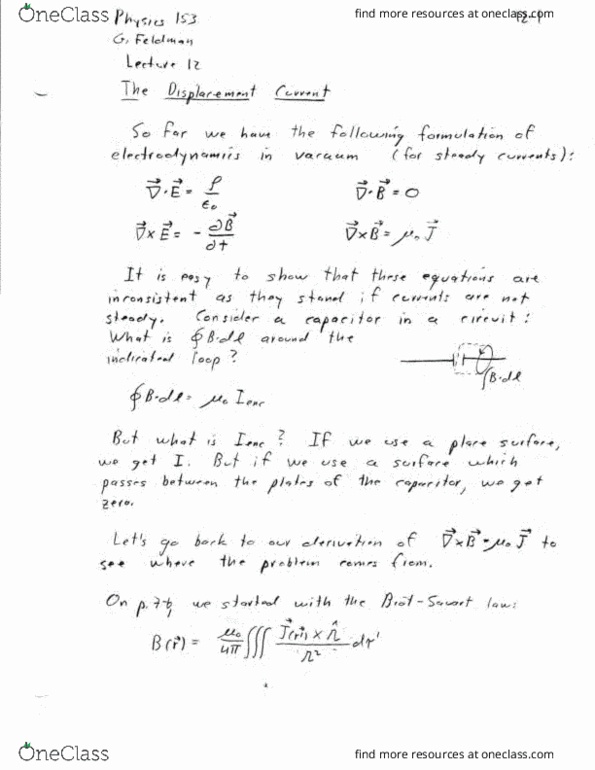 OneClass
find more resources at oneclass.com
Physics 153
G. Feldman
Lecture 12
The Displacement Current
So far we have the following formulation of
electrodynamics in vacuum (for steady currents):
∇⃗·E⃗ = ρ/ε₀    ∇⃗·B⃗ = 0
∇⃗×E⃗ = - ∂B⃗/∂t    ∇⃗×B⃗ = μ₀ J⃗
It is easy to show that these equations are
inconsistent as they stand if currents are not
steady. Consider a capacitor in a circuit:
What is ∮B·dl around the
indicated loop?
∫B·dl
∮B·dl = μ₀ Ienc
But what is Ienc? If we use a plane surface,
we get I. But if we use a surface which
passes between the plates of the capacitor, we get
zero.
Let's go back to our derivation of ∇⃗×B⃗ = μ₀ J⃗ to
see where the problem comes from.
On p. 7-6, we started with the Biot-Savart law:
B(r⃗) = μ₀/4π ∭ J⃗(r⃗') × r̂ / r² dτ'
OneClass
find more resources at oneclass.com